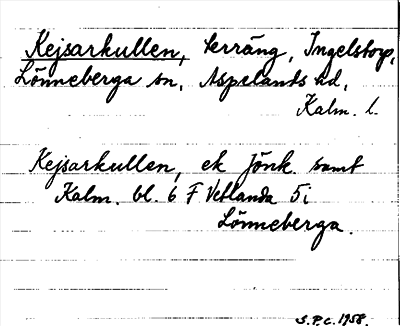 Kejsarkullen, terräng, Ingelstorp,
Lönneberga sn, Aspelands hd,
Kalm. l.
Kejsarkullen, ek Jönk. samt
Kalm. bl. 6 F Vetlanda 5 i
Lönneberga.
S.P.C. 1958.